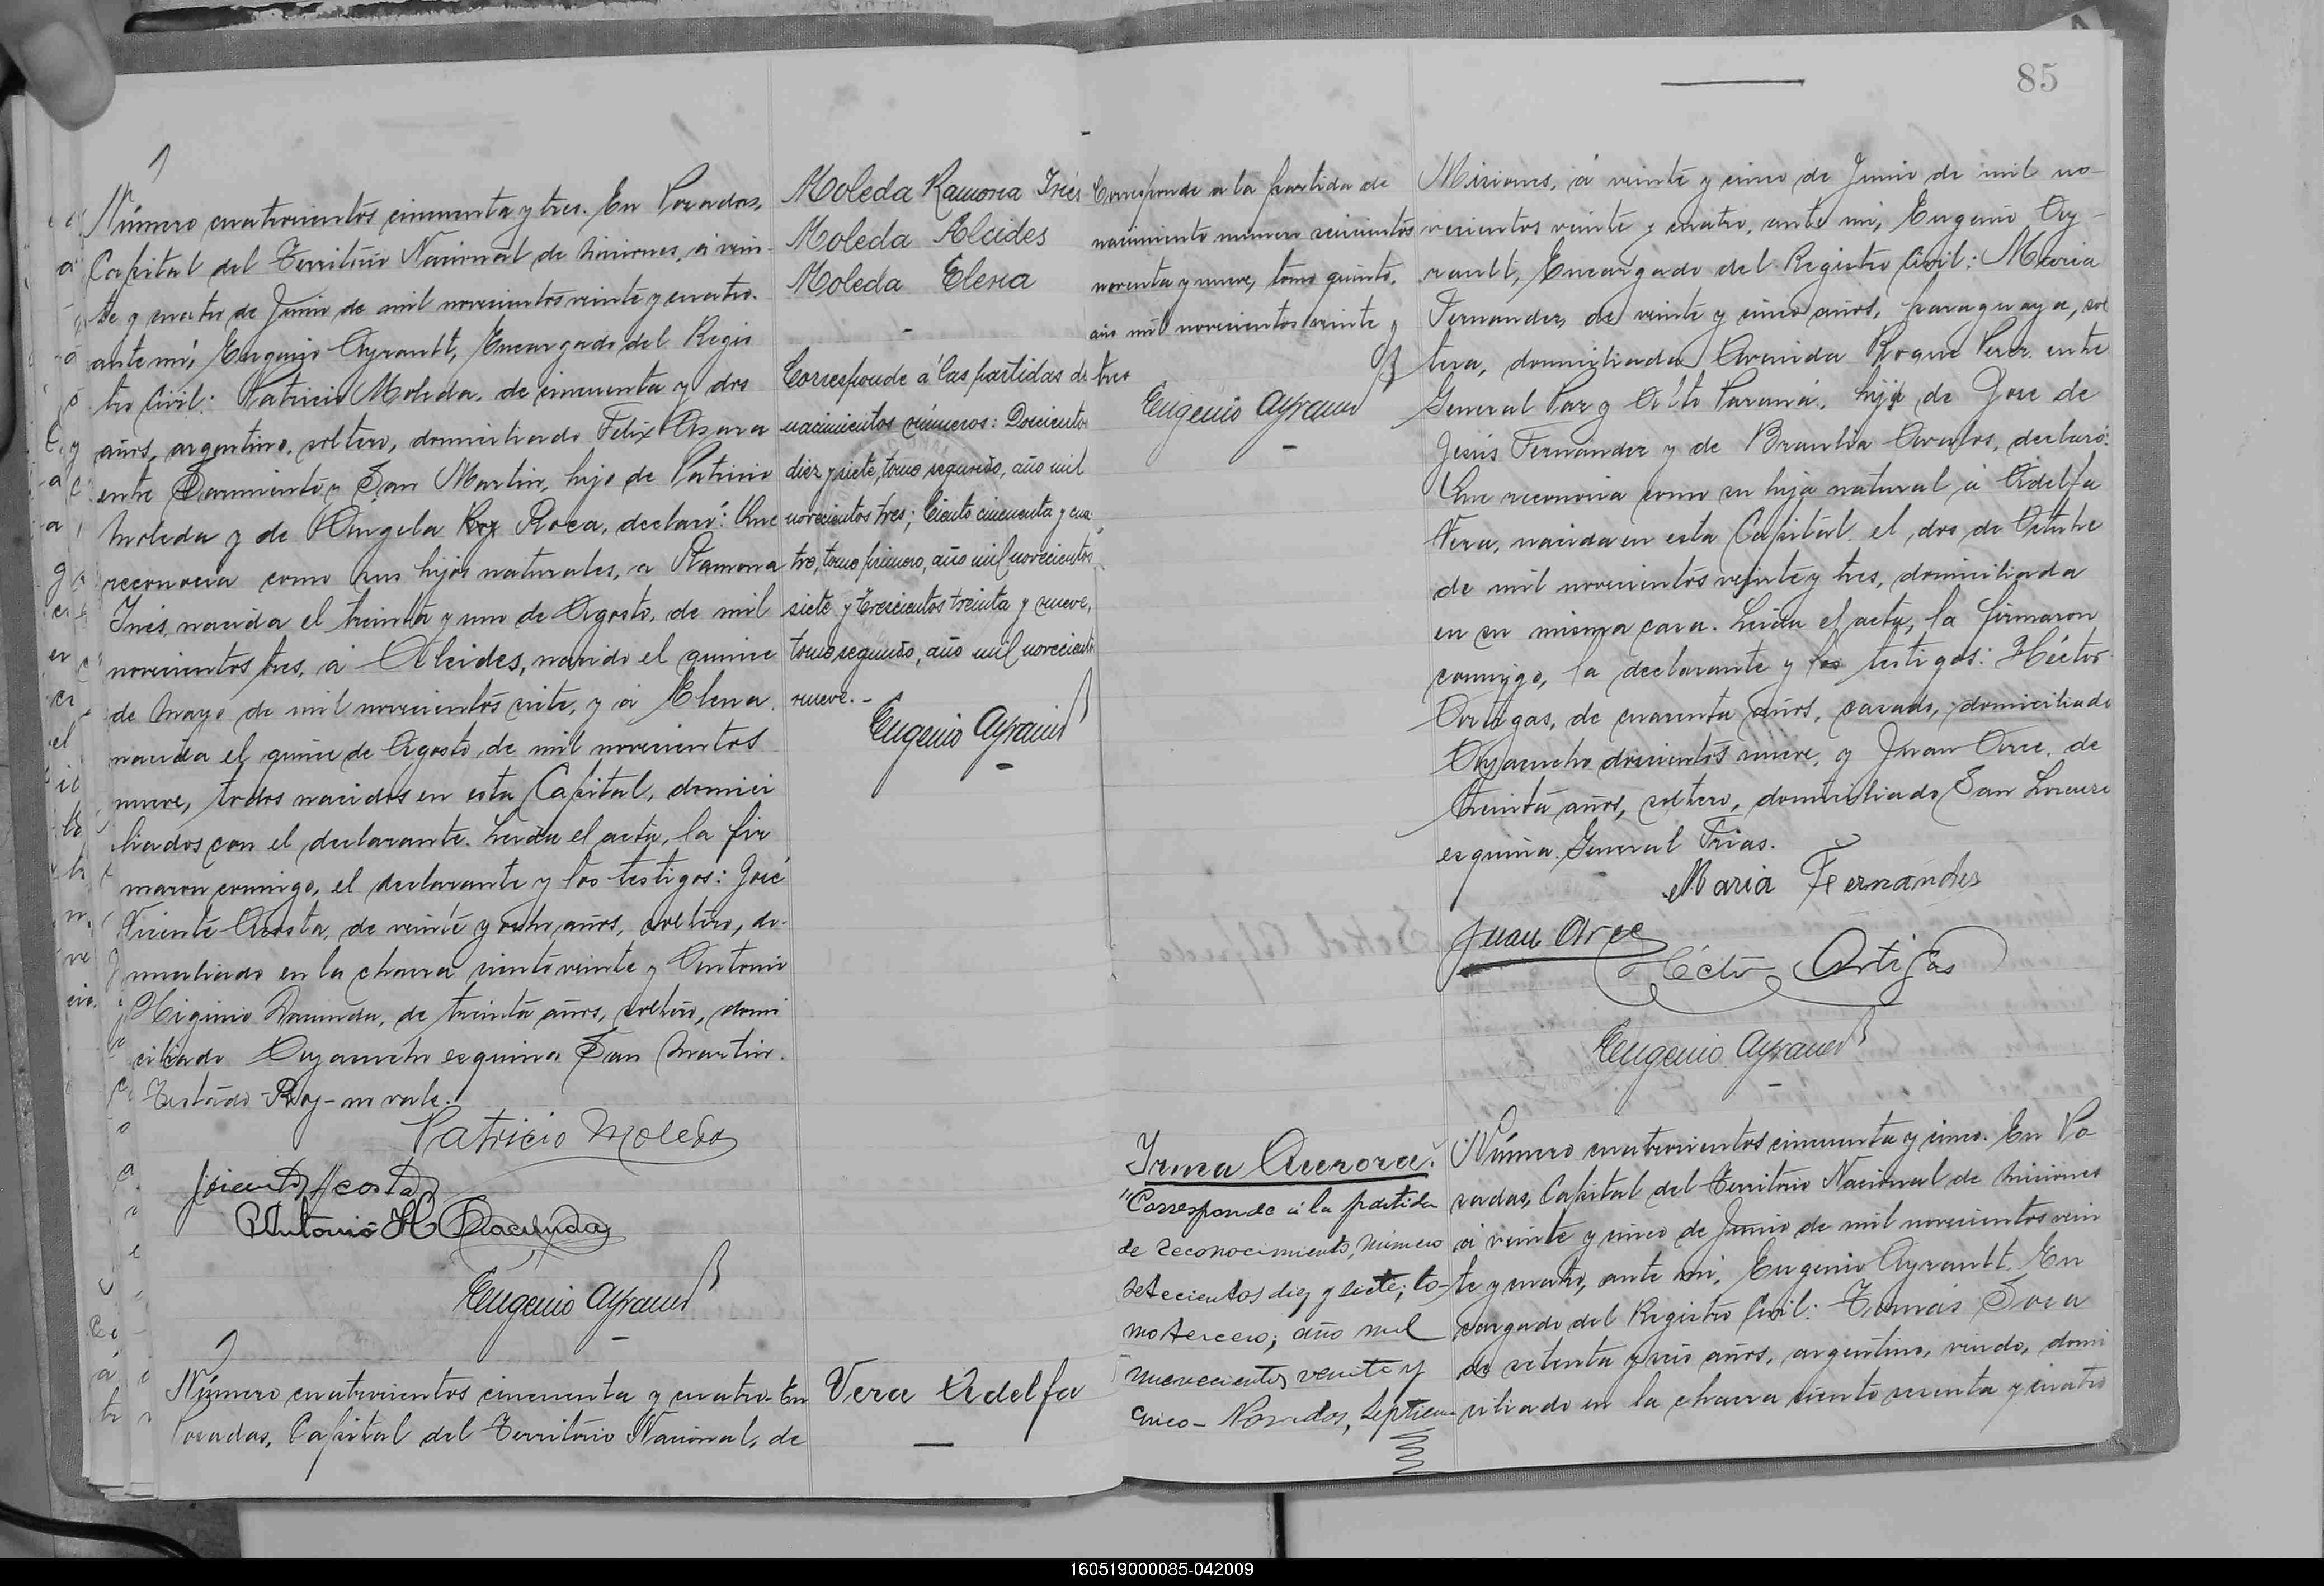 Número cuatrocientos cincuenta y tres. En Posadas,
Capital del Territorio Nacional de Misiones, á vein-
te y cuatro de Junio de mil novecientos veinte y cuatro.
ante mí, Eugenio Ayrault, Encargado del Regis
tro Civil: Patricio Moleda, de cincuenta y dos
años, argentino, soltero, domiciliado Felix Azara
entre Sarmiento y San Martin, hijo de Patricio
Moleda y de Angela Roy Roca, declaró: Que
reconocia como sus hijos naturales, a Ramona
Inés, nacida el treinta y uno de Agosto, de mil
novecientos tres, á Alcides, nacido el quince
de Mayo de mil novecientos siete, y á Elena,
nacida el quince de Agosto, de mil novecientos
nueve, todos nacidos en esta Capital, domici
liados con el declarante. Leida el acta, la fir
maron conmigo, el declarante y los testigos: José
Vicente Acosta, de veinte y ocho años, soltero, do-
miciliado en la chacra ciento veinte y Antonio
Higinio Dacunda, de treinta años, soltero, domi
ciliado Ayacucho esquina San Martin.
Testado-Roy-no vale.
Patricio Moleda
J. Vicente Acosta
Antonio H Dacunda
Eugenio Ayrault
Número cuatrocientos cincuenta y cuatro. En
Posadas, Capital del Territorio Nacional, de
Moleda Ramona Inés
Moleda Alcides
Moleda Elena
Corresponde á las partidas de
nacimientos números: Doscientos
diez y siete, tomo segundo, año mil
novecientos tres; Ciento cincuenta y cua-
tro, tomo primero, año mil novecientos
siete y trescientos treinta y nueve,
tomo segundo, año mil novecientos
nueve.-
Eugenio Ayrault
Vera Adelfa
85
Corresponde a la partida de
nacimiento numero seiscientos
noventa y nueve, tomo quinto,
año mil novecientos veinte y
tres
Eugenio Ayrault
Misiones, á veinte y cinco de Junio de mil no-
vecientos veinte y cuatro, ante mí, Eugenio Ay-
rault, Encargado del Registro Civil: Maria
Fernandez, de veinte y cinco años, paraguaya, sol
tera, domiciliada Avenida Roque Perez entre
General Paz y Alto Paraná, hija de Jose de
Jesús Fernández y de Braulia Avalos, declaró:
Que reconocia como su hija natural á Adelfa
Vera, nacida en esta Capital, el dos de Octubre
de mil novecientos veinte y tres, domiciliada
en su misma casa. Leida el acta, la firmaron
conmigo, la declarante y los testigos: Héctor
Artigas, de cuarenta años, casado, domiciliado
Ayacucho doscientos nueve, y Juan Arce, de
treinta años, soltero, domiciliado San Lorenzo
esquina General Frias.
Maria Fernandez
Juan Arce
Héctor Artigas
Eugenio Ayrault
Irma Aurora.
"Corresponde á la partida
de reconocimiento, número
setecientos diez y siete; to-
mo tercero; año mil
novecientos veinte y
cinco - Posadas, Septiem-
Número cuatrocientos cincuenta y cinco. En Po-
sadas, Capital del Territorio Nacional de Misiones
á veinte y cinco de Junio de mil novecientos vein
te y cuatro, ante mí, Eugenio Ayrault, En
cargado del Registro Civil: Tomás Sosa
de setenta y seis años, argentino, viudo, domi
ciliado en la chacra ciento sesenta y cuatro
160519000085-042009